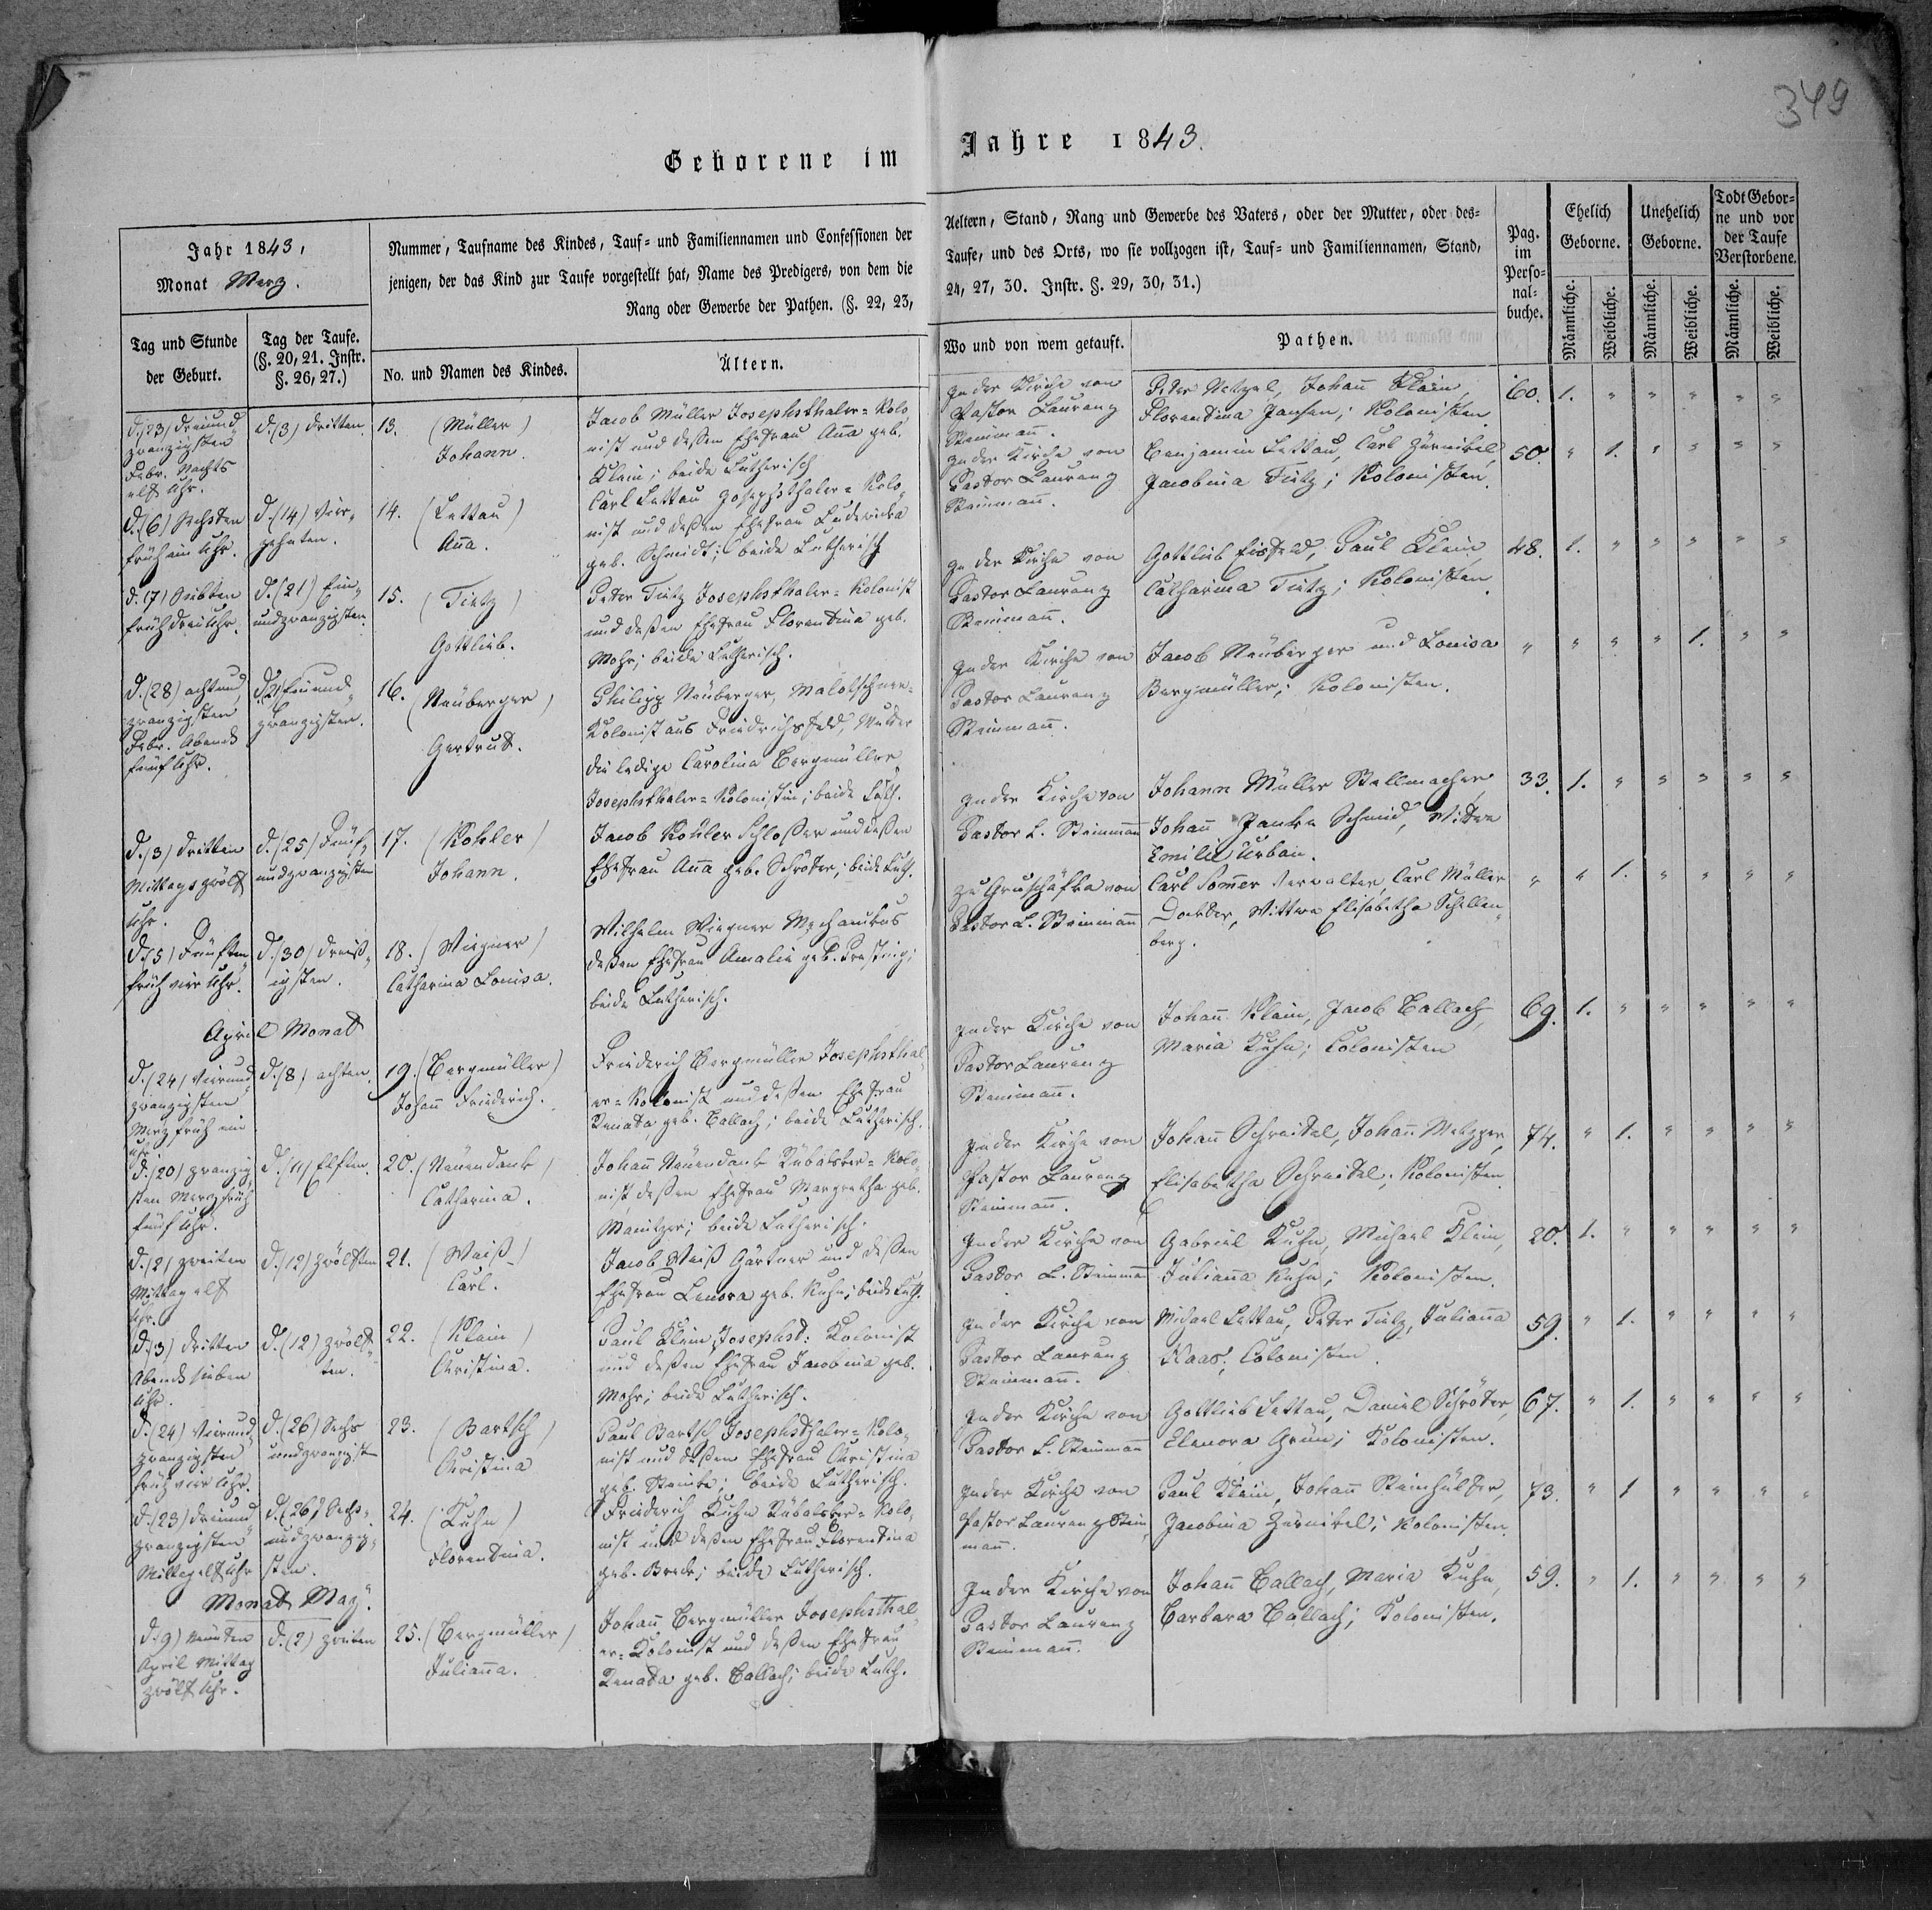 349
Geborene im Jahre 1843.
Jahr 1843,
Monat Merz.
Nummer, Taufname des Kindes, Tauf- und Familiennamen und Confessionen der
Aeltern, Stand, Rang und Gewerbe des Vaters, oder der Mutter, oder des-
jenigen, der das Kind zur Taufe vorgestellt hat, Name des Predigers, von dem die
Taufe, und des Orts, wo sie vollzogen ist, Tauf- und Familiennamen, Stand,
Rang oder Gewerbe der Pathen. (§. 22, 23,
24, 27, 30. Instr. §. 29, 30, 31.)
Pag.
im
Perso-
nal-
buche.
Ehelich
Geborne.
Unehelich
Geborne.
Todt Gebor-
ne und vor
der Taufe
Verstorbene.
Tag und Stunde
der Geburt.
Tag der Taufe.
(§. 20, 21. Instr.
§. 26, 27.)
No. und Namen des Kindes.
Ältern.
Wo und von wem getauft.
Pathen.
Männliche.
Weibliche.
Männliche.
Weibliche.
Männliche.
Weibliche.
d. (23) Dreiund
zwanzigsten
Febr. Nachts
elf Uhr.
d. (3) dritten
13. (Müller)
Johann.
Jacob Müller Josephsthaler-Kolo
nist und deßen Ehefrau Anna geb.
Klein; beide Lutherisch
In der Kirche von
Pastor Laurenz
Steinmann.
Peter Metzel, Johann Klein,
Florentina Jansen; Kolonisten
60. 1. " " " " "
d. (6) Sechsten
früh ein Uhr.
d. (14) Vier-
zehnten.
14. (Lettau)
Anna.
Carl Lettau Josephsthaler-Kolo
nist und deßen Ehefrau Ludewicka
geb. Schmidt; beide Lutherisch
In der Kirche von
Pastor Laurenz
Steinmann.
Benjamin Lettau, Carl Zürnikel,
Jacobina Tietz; Kolonisten.
50. " 1. " " " "
d. (7) Siebten
früh drei Uhr.
d. (21) Ein-
undzwanzigsten
15. (Tietz)
Gottlieb.
Peter Tietz Josephsthaler-Kolonist
und deßen Ehefrau Florentina geb.
Mohr; beide Lutherisch.
In der Kirche von
Pastor Laurenz
Steinmann.
Gottlieb Eisfeld, Paul Klein,
Catharina Tietz; Kolonisten.
48. 1. " " " " "
d. (28) achtund
zwanzigsten
Febr. Abends
fünf Uhr.
d. (21) einund-
zwanzigsten.
16. (Neuberger)
Gertrud.
Philipp Neuberger, Malotschner-
Kolonist aus Friedrichsfeld, Mutter
die ledige Carolina Bergmüller
Josephsthaler-Kolonistin; beide Luth.
In der Kirche von
Pastor Laurenz
Steinmann.
Jacob Neuberger und Louisa
Bergmüller; Kolonisten.
" " " " 1. " "
d. (3) dritten
Mittags zwölf
Uhr.
d. (25) Fünf-
undzwanzigsten
17. (Kohler)
Johann.
Jacob Kohler Schloßer und deßen
Ehefrau Anna geb. Schröter; beide Luth.
In der Kirche von
Pastor L. Steinmann
Johann Müller Stellmacher,
Johann Schmid,
Emilie Urban.
33. 1. " " " " "
d. (5) Fünften
früh vier Uhr.
d. (30) dreiß-
igsten.
18. (Wiegner)
Catharina Louisa.
Wilhelm Wiegner Mechanikus
deßen Ehefrau Amalie geb.
beide Lutherisch.
zu von
Pastor L. Steinmann
Carl Sommer Verwalter, Carl Müller
Doktor, Wittwe Elisabetha Schellen-
berg.
" " 1. " " " "
April Monat
d. (24) Vierund
zwanzigsten
Merz früh ein
Uhr.
d. (8) achten
19. (Bergmüller)
Johann Friederich.
Friederich Bergmüller Josephsthal
er-Kolonist und deßen Ehefrau
Renata geb. Ballach; beide Lutherisch.
In der Kirche von
Pastor Laurenz
Steinmann.
Johann Klein, Jacob Ballach,
Maria Kuhn; Colonisten
69. 1. " " " " "
d. (20) zwanzig
sten Merz früh
fünf Uhr.
d. (11) Elften
20. (Neuendank)
Catharina.
Johann Neuendank Rübalsker-Kolo
nist, deßen Ehefrau Margretha geb.
beide Lutherisch.
In der Kirche von
Pastor Laurenz
Steinmann.
Johann Schreitel, Johann Metzger,
Elisabetha Schreitel; Kolonisten.
74. " 1. " " " "
d. (2) zweiten
Mittag elf
Uhr.
d. (12) zwölften
21. (Weiß)
Carl.
Jacob Weiß Gärtner und deßen
Ehefrau Lenora geb. Kuhn; beide Luth.
In der Kirche von
Pastor L. Steinmann
Gabriel Kuhn, Michael Klein,
Julianna Kuhn; Kolonisten.
20. 1. " " " " "
d. (3) dritten
Abends sieben
Uhr.
d. (12) zwölf-
ten.
22. (Klein)
Christina.
Paul Klein, Josephst: Kolonist
und deßen Ehefrau Jacobina geb.
Mohr; beide Lutherisch.
In der Kirche von
Pastor Laurenz
Steinmann.
Michael Lettau, Peter Tietz, Julianna
Haas; Colonisten.
59. " 1. " " " "
d. (24) Vierund
zwanzigsten
früh vier Uhr.
d. (26) Sechs
undzwanzigsten
23. (Bartsch)
Christina
Paul Bartsch Josephsthaler-Kolo-
nist und deßen Ehefrau Christina
geb. Steinke; beide Lutherisch.
In der Kirche von
Pastor L. Steinmann
Gottlieb Lettau, Daniel Schröter,
Elenora Grün; Kolonisten.
67. " 1. " " " "
d. (23) dreiund
zwanzigsten
Mittag elf Uhr
d. (26) Sechs-
undzwanzig-
sten.
24. (Kuhn)
Florentina.
Friederich Kuhn Rübalsker-Kolo
nist und deßen Ehefrau Florentina
geb. Brede; beide Lutherisch.
In der Kirche von
Pastor Laurenz Stein
mann.
Paul Klein, Johann Steinhülber,
Jacobina Zürnikel; Kolonisten.
73. " 1 " " " "
Monat May.
d. 9) Neunten
April Mittag
zwölf Uhr.
d. (2) zweiten
25. (Bergmüller)
Julianna.
Johann Bergmüller Josephsthal
er-Kolonist und deßen Ehefrau
Renata geb. Ballach; beide Luth.
In der Kirche von
Pastor Laurenz
Steinmann.
Johann Ballach, Maria Kuhn,
Barbara Ballach; Kolonisten.
59. " 1. " " " "